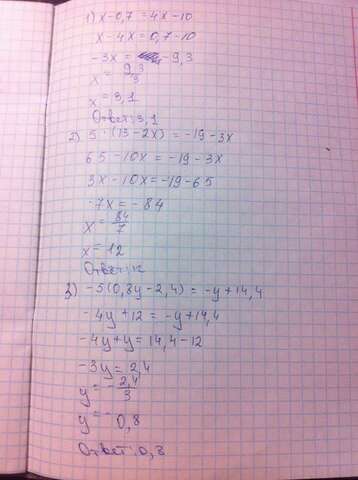 1) x-0,7 = 4x-10
x-4x=0,7-10
-3x = -9,3
x = 9,3/3
x = 3,1
Ответ: 3,1
2) 5·(13-2x) = -19-3x
65-10x = -19-3x
3x-10x=-19-65
-7x = -84
x = 84/7
x = 12
Ответ: 12
3) -5(0,8y-2,4) = -y+14,4
-4y+12 = -y+14,4
-4y+y = 14,4-12
-3y = 2,4
y = -2,4/3
y = -0,8
Ответ: 0,8